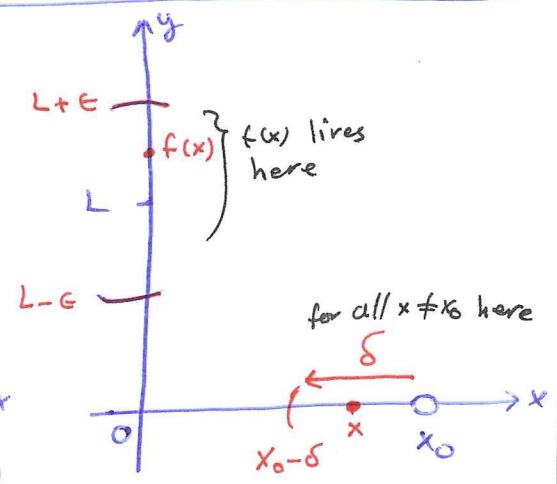 y
L + ϵ
f(x)
f(x) lives
here
L
L - ϵ
for all x ≠ x₀ here
δ
x
0
x
x₀
x₀-δ